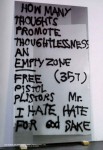 HOW MANY
THOUGHTS
PROMOTE
THOUGHTLESSNESS
AN
EMPTY ZONE
FREE (35T)
PISTOL
Mr.
I HATE HATE
FOR GOD SAKE